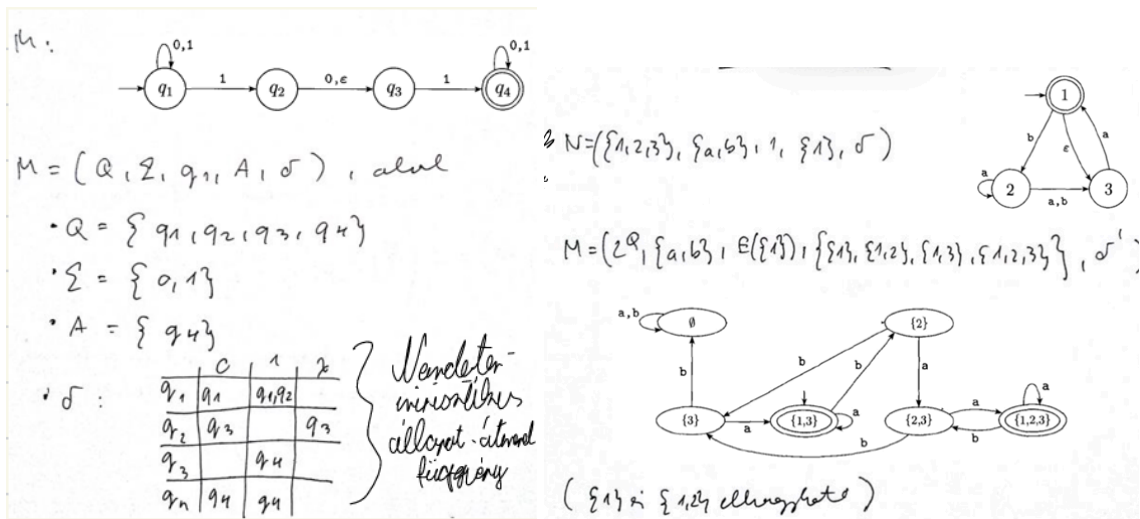 M:
0,1
0,1
q1
1
q2
0,ε
q3
1
q4
M = (Q, Σ, q1, A, δ), ahol
• Q = {q1, q2, q3, q4}
• Σ = {0,1}
• A = {q4}
• δ:
0 1 λ
q1 q1 q1,q2
q2 q3 q3
q3 q4
q4 q4 q4
Nemdeter-
minisztikus
állapot-átmenet
függvény
N=({1,2,3}, {a,b}, 1, {1}, δ)
1
b
ε
a
a
2
a,b
3
M=(2^Q, {a,b}, E({1}), {{1}, {1,2}, {1,3}, {1,2,3}}, δ')
a,b
∅
{2}
b
b
b
a
a
{3}
a
{1,3}
a
{2,3}
a
{1,2,3}
b
b
({1} és {1,2} elhagyható)